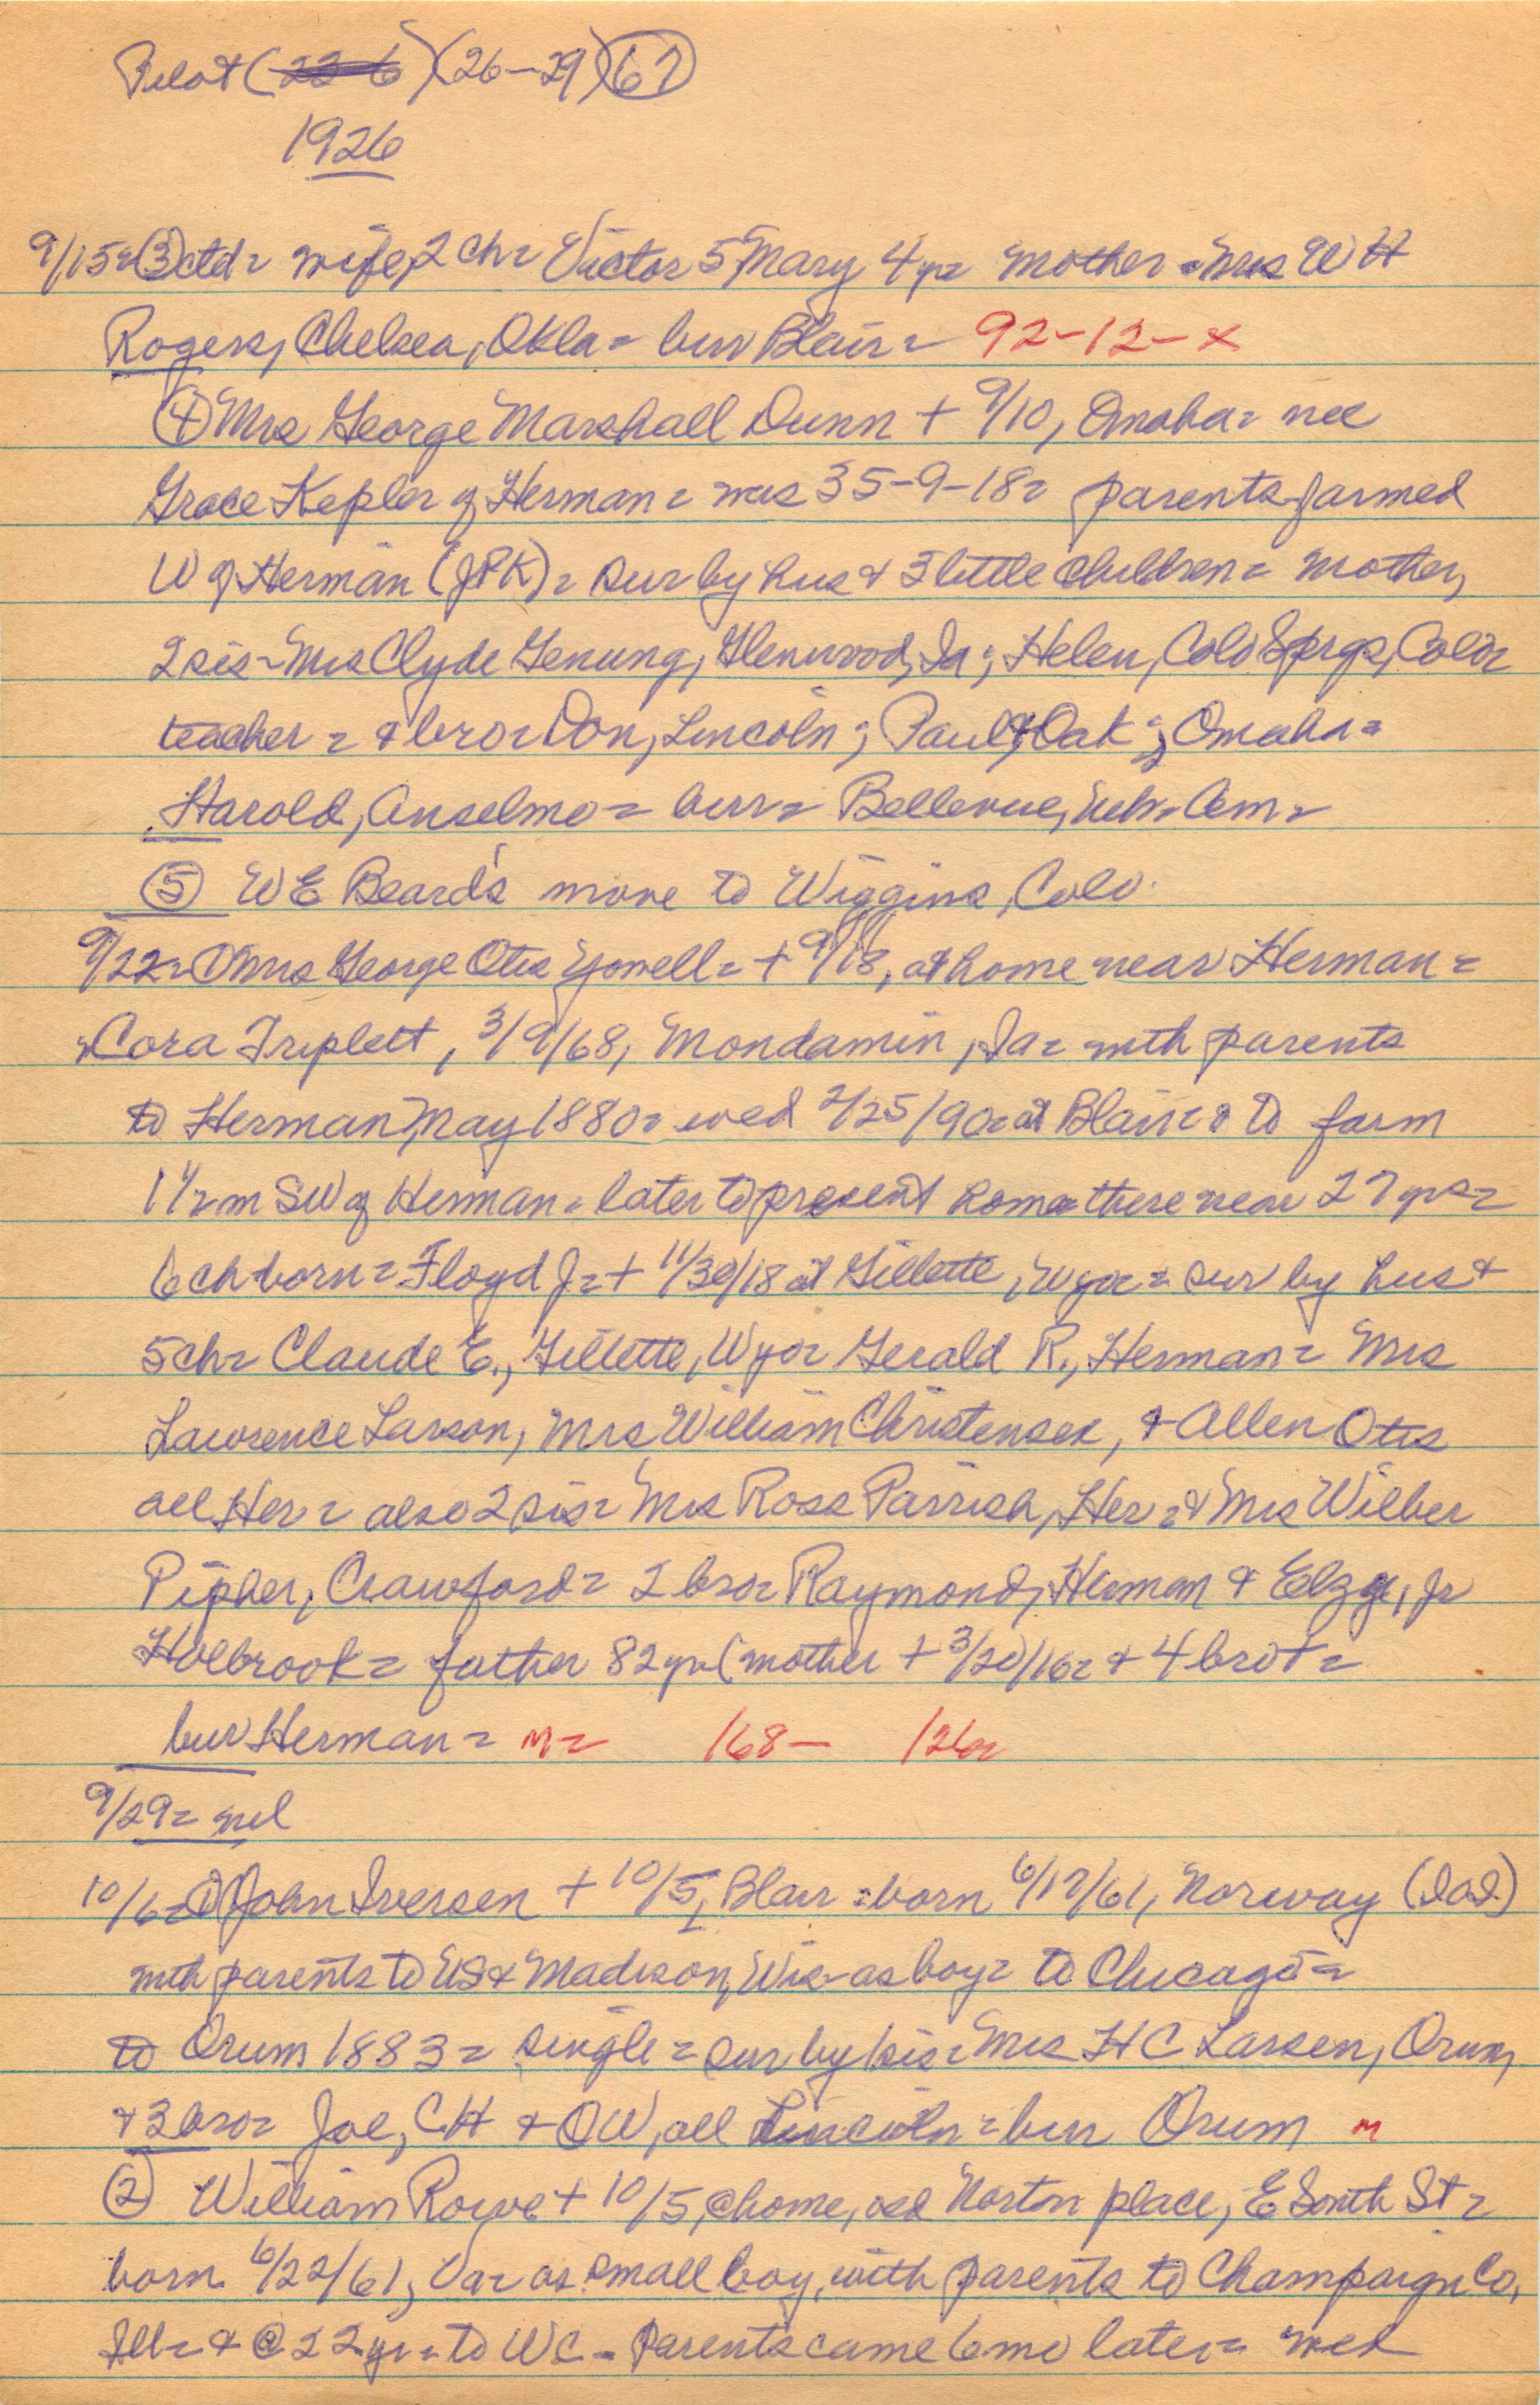 Pilot (22-6) (26-29) 67
1926
9/15= ③ ctd= wife, 2 ch= Victor 5 Mary 4 yr= mother = Mrs W H
Rogers, Chelsea, Okla= bur Blair= 92-12-x
④ Mrs George Marshall Dunn + 9/10, Omaha= nee
Grace Kepler of Herman= was 35-9-18= parents farmed
W of Herman (JPK)= sur by hus & 3 little children= mother,
2 sis- Mrs Clyde Genung, Glenwood, Ia; Helen, Colo Sprgs, Colo=
teacher = & bro= Don, Lincoln; Paul & Oak; Omaha=
Harold, Anselmo= bur= Bellevue, Neb= Cem=
⑤ W E Beard's move to Wiggins, Colo.
9/22= ① Mrs George Otis Yowell= + 9/18, at home near Herman=
Cora Triplett, 3/9/68, Mondamin, Ia= with parents
to Herman, May 1880= wed 2/25/90= at Blair= & to farm
1 1/2 m SW of Herman= later to present home there near 27 yrs=
6 ch born= Floyd J= + 11/30/18 at Gillette, Wyo= sur by hus &
5 ch= Claude E., Gillette, Wyo= Gerald R., Herman= Mrs
Lawrence Larson, Mrs William Christensen, & Allen Otis
all Her= also 2 sis= Mrs Ross Parrish, Her= & Mrs Wilber
Pipher, Crawford= 2 bro= Raymond, Herman & Elzge, Jr
Holbrook= father 82 yr (mother + 3/20/16= & 4 bro+=
bur Herman= m= 168- 126=
9/29= nel
10/6= ① John Iversen + 10/5, Blair= born 6/17/61, Norway (Iad.)
with parents to US & Madison, Wis- as boy= to Chicago=
to Orum 1883= single= sur by 1 sis= Mrs H C Larsen, Orum,
& 3 bro= Joe, CH & OW, all Lincoln= bur Orum m
② William Rowe + 10/5, @ home, old Norton place, E South St=
born 6/22/61, Va= as small boy, with parents to Champaign Co,
Ill= & @ 22 yr= to WC- Parents came 6 mo later= wed